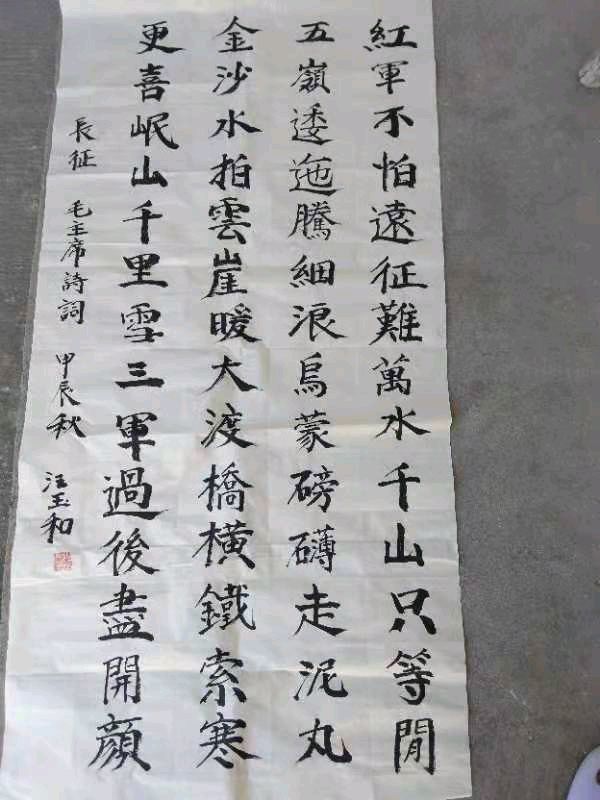 紅軍不怕遠征難萬水千山只等閒
五嶺逶迤騰細浪烏蒙磅礴走泥丸
金沙水拍雲崖暖大渡橋橫鐵索寒
更喜岷山千里雪三軍過後盡開顏
長征 毛主席詩詞 甲辰秋 汪玉和